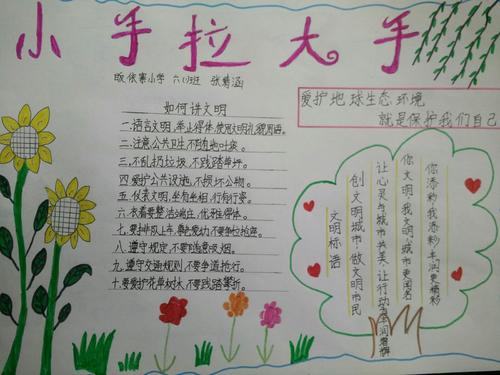 小手拉大手
依寨小学 六(1)班 张
爱护地球生态环境
就是保护我们自己
如何讲文明
一.语言文明,举止得体,使用文明礼貌用语。
二.注意公共卫生,不随地吐痰。
三.不乱扔垃圾,不践踏草坪。
四.爱护公共设施,不损坏公物。
五.仪表文明,坐有坐相,行有行姿。
六.衣着要整洁端庄,优雅得体。
七.要排队上车,尊老爱幼,不要争抢抢座。
八.遵守规定,不要随意吸烟。
九.遵守交通规则,不要争道抢行。
十.要爱护花草树木,不要践踏攀折。
你添彩,我添彩,丰润更精彩
你文明,我文明,城市更闻名
让心灵与城市共美,让行动
创文明城市,做文明市民
文明标语